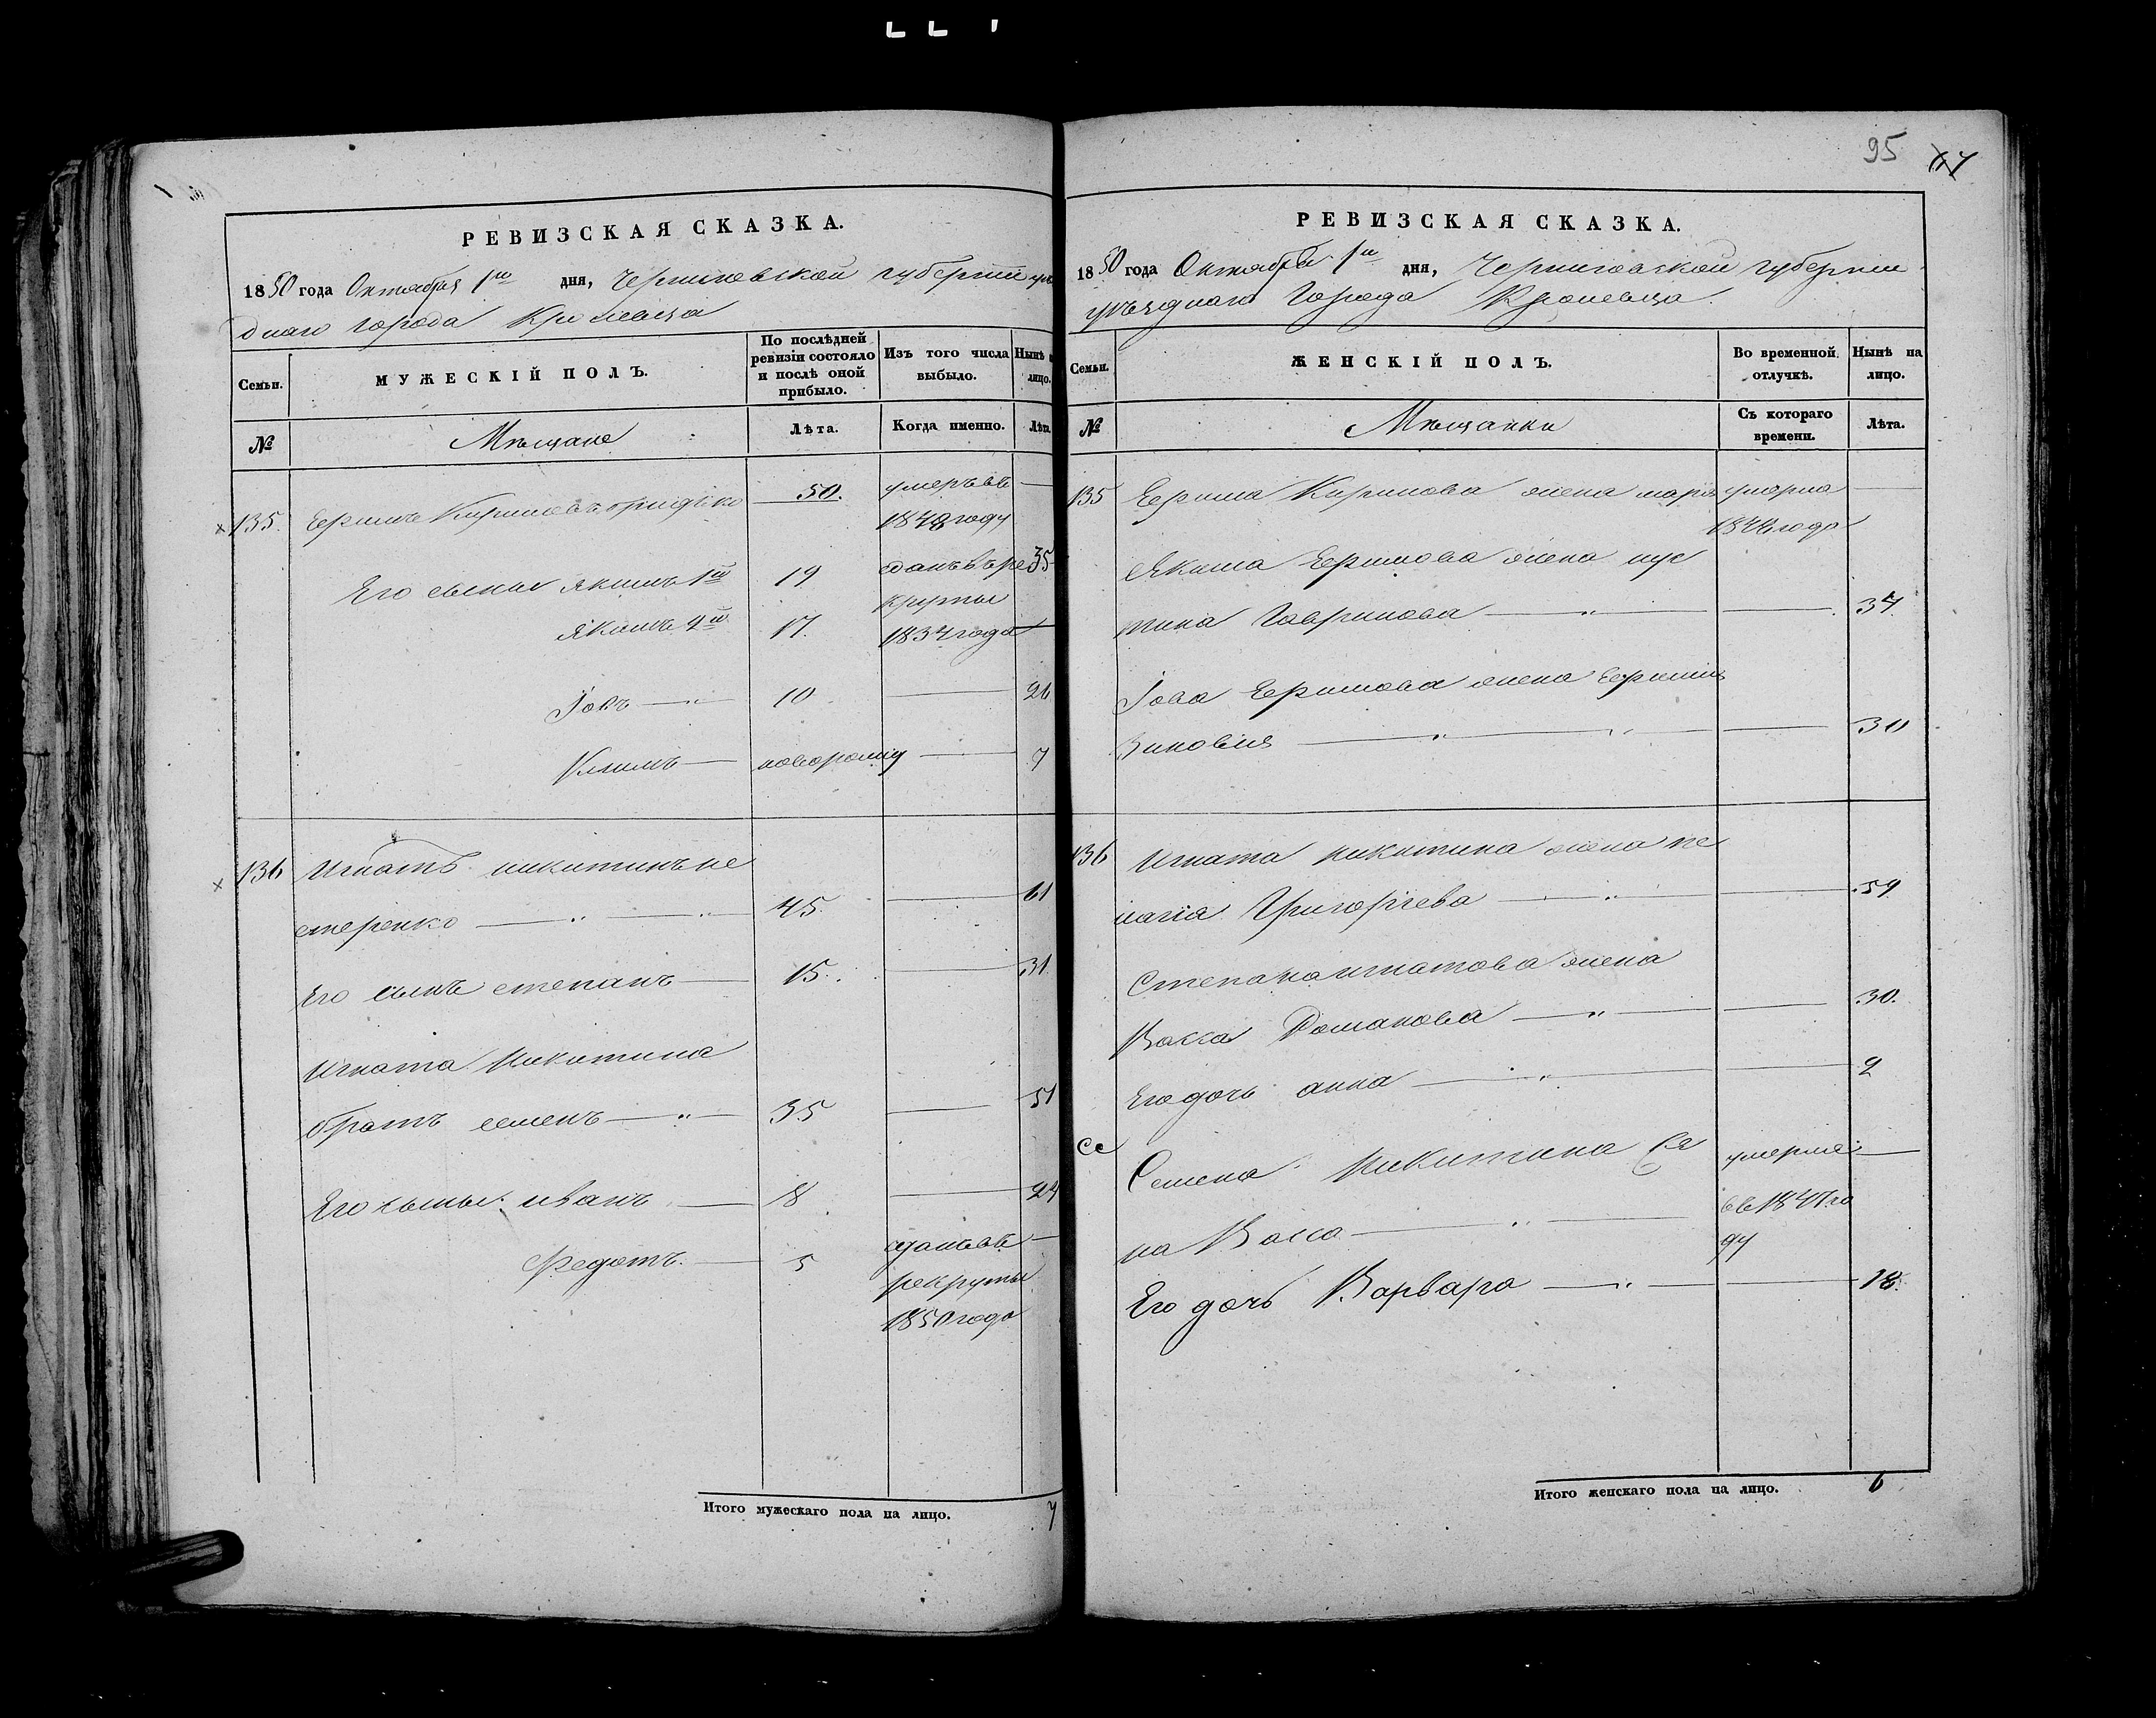 95 67
РЕВИЗСКАЯ СКАЗКА.
1850 года Октября 1го дня, Черниговской губернии уѣз
днаго города Кролевца
Семьи. МУЖЕСКІЙ ПОЛЪ. По послѣдней ревизіи состояло и послѣ оной прибыло. Изъ того числа выбыло. Нынѣ на лицо.
№ Мѣщане Лѣта. Когда именно. Лѣта.
135. Ефимъ Кириловъ 50. умеръ въ —
1848 году
Его сыны Якимъ 1й 19 сданъ въ ре 35
круты
Якимъ 2й 17. 1834 года —
Іовъ — 10 — 26
Климъ — новорожд — 7
136 Игнатъ Никитинъ Не
стеренко — 45. — 61
Его сынъ Степанъ — 15. — 31
Игната Никитина
братъ Семенъ — 35 — 51
Его сыны: Иванъ — 8 — 24
Федотъ. — 5 сданъ въ —
рекруты
1850 года
Итого мужескаго пола на лицо. 7
РЕВИЗСКАЯ СКАЗКА.
1850 года Октября 1го дня, Черниговской губернии
уѣзднаго города Кролевца.
Семьи. ЖЕНСКІЙ ПОЛЪ. Во временной отлучкѣ. Нынѣ на лицо.
№ Мѣщанки Съ котораго времени. Лѣта.
135 Ефима Кирилова жена Марія умерла —
года
Якима Ефимова жена Иус
тина Гаврилова — — 34
Іова Ефимова жена
Зиновіия — — 30
136 Игната Никитина жена Пе
лагія Григоріева — — 59
Степана Игнатова жена
Васса Романова — — 30.
Его дочь Анна — — 2
Се Семена Никитина же умерла —
въ 1847 го
на Васса — ду
Его дочь Варвара — — 18.
Итого женскаго пола на лицо. 6